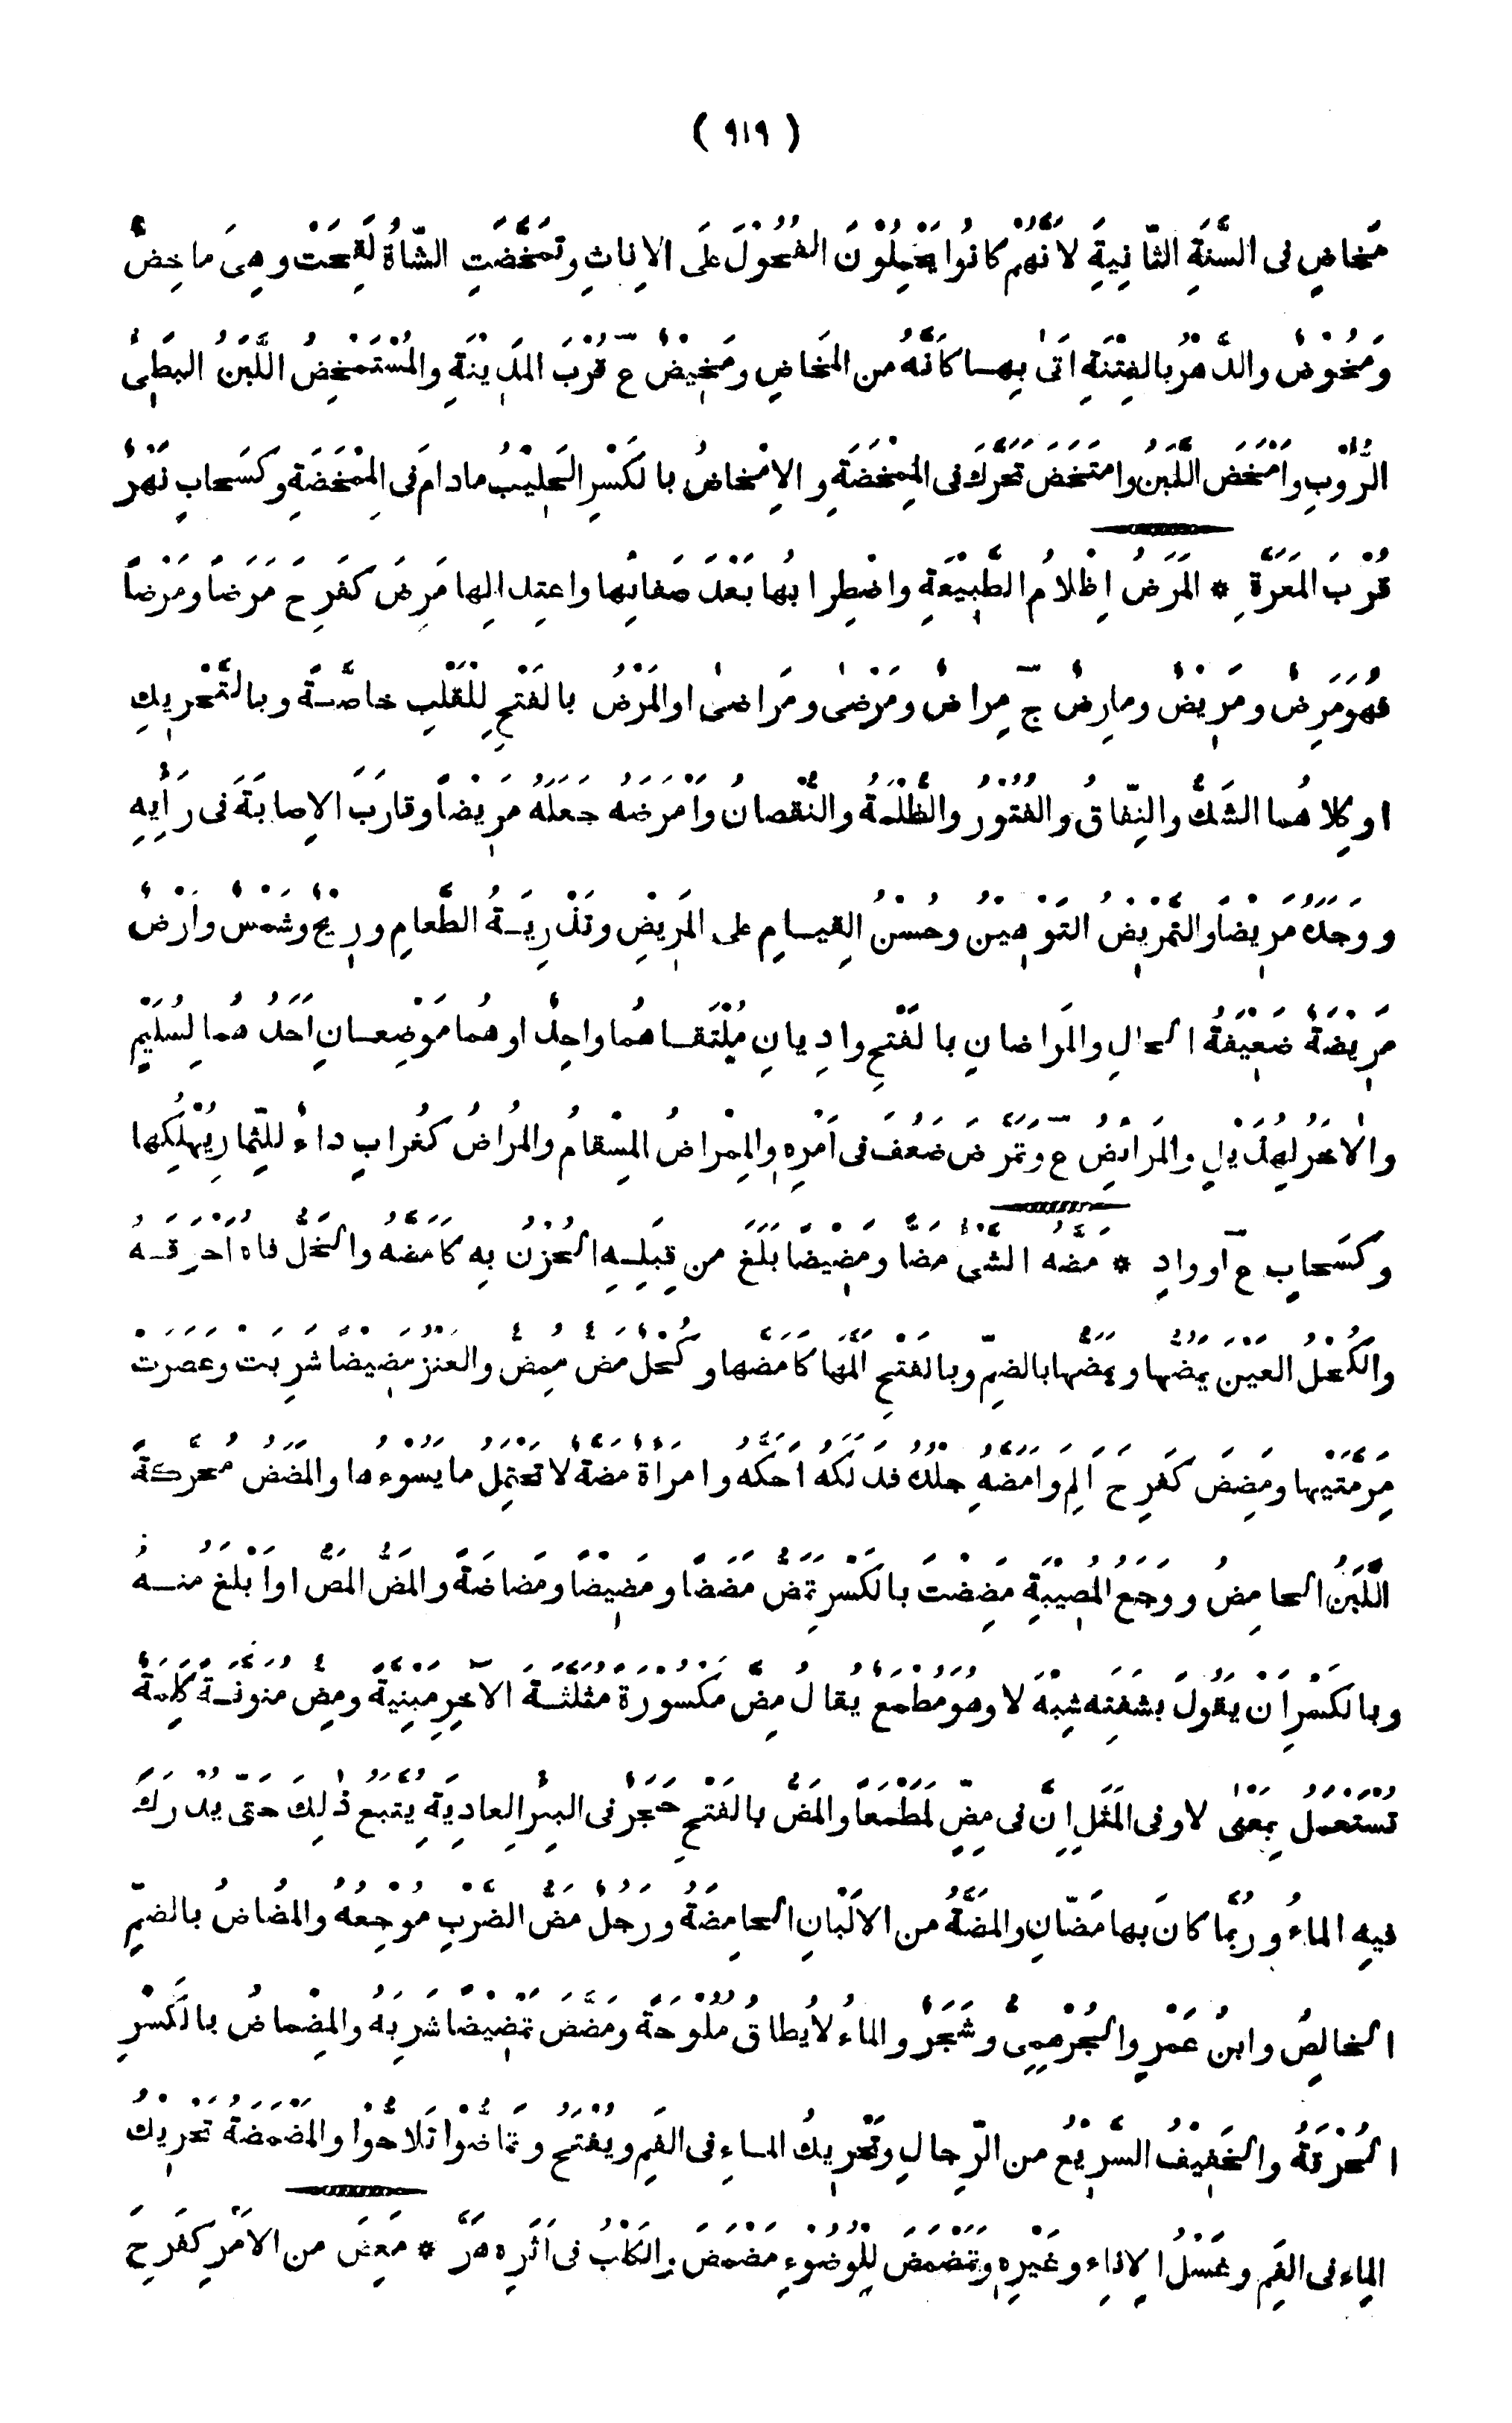 ( ٩١٩ )
مَخاضٍ فى السَّنَةِ الثَّانِيَةِ لاَنَّهُمْ كانُوا يَحْمِلُوْنَ الفُحُوْلَ عَلَى الاِناثِ وتَمَخَّضَتِ الشَّاةُ لَقِحَتْ وهِىَ ماخِضٌ
ومَخُوْضٌ والدَّهْرُ بالفِتْنَةِ اَتىٰ بِهـا كَاَنَّهُ من المَخاضِ ومَخِيْضٌ ع قُرْبَ المَدِيْنَةِ والمُسْتَمْخِضُ اللَّبَنُ البَطِىْءُ
الرُّوْبِ واَمْخَضَ اللَّبَنُ وامتَخَضَ تَحَرَّكَ فى المِمْخَضَةِ والاِمْخاضُ بالكَسْرِ الحَلِيْبُ مادامَ فى المِمْخَضَةِ وكَسَحابٍ نَهْرٌ
قُرْبَ المَعَرَّةِ * المَرَضُ اِظْلامُ الطَّبِيْعَةِ واضْطِرابُها بَعْدَ صَفائِها واعتِدالِها مَرِضَ كفَرِحَ مَرَضاً ومَرْضاً
فهُوَ مَرِضٌ ومَرِيْضٌ ومارِضٌ جّ مِراضٌ ومَرْضىٰ ومَراضىٰ اوالمَرْضُ بالفَتْحِ لِلْقَلْبِ خاصَّـةً وبالتَّحْرِيكِ
اوكِلاهُما الشَكُّ والنِّفاقُ والفُتُوْرُ والظُّلْمَةُ والنُّقْصانُ واَمْرَضَهُ جَعَلَهُ مَرِيْضاً وقارَبَ الاِصابَةَ فى رَأْيِهِ
ووجَدَهُ مَرِيْضًا والتَّمْرِيْضُ التَوْهِيْنُ وحُسْنُ القِيـامِ على المَرِيْضِ وتَذْرِيَـةُ الطَّعامِ ورِيْحٌ وشَمْسٌ واَرْضٌ
مَرِيْضَةٌ ضَعِيْفَةُ الحالِ والمَراضانِ بالفَتْحِ وادِيانِ مُلْتَقـاهُما واحِدٌ اوهُما مَوْضِعـانِ اَحَدُهُما لِسُلَيْمٍ
والاٰخَرُ لِهُذَيْلٍ والمَرائِضُ ع وتَمَرَّضَ ضَعُفَ فى اَمْرِهٖ والمِمْراضُ المِسْقامُ والمُراضُ كغُرابٍ داءٌ للثِّمارِ يُهْلِكُها
وكسَحابٍ ع او وادٍ * مَضَّهُ الشَّىْءُ مَضًّا ومَضِيْضًا بَلَغَ من قِبَلِـهِ الحُزْنُ بِهٖ كَاَمَضَّهُ والخَلُّ فاهُ احْرَقَـهُ
والكُحْلُ العَيْنَ يَمُضُّها ويَمَضُّها بالضَمّ وبالفَتْحِ اٰلَمَها كَاَمَضَّها وكُحْلٌ مَضٌّ مُمِضٌّ والعَنْزُ مَضِيْضًا شَرِبَتْ وعَصَرَتْ
مَرَمَّتَيْها ومَضِضَ كفَرِحَ اَلِمَ واَمَضَّهُ جِلْدُهُ فدَلَكَهُ اَحَكَّهُ وامْراَةٌ مَضَّةٌ لاتَحْتَمِلُ مايَسُوءُها والمَضَضُ مُحَرَّكَةً
اللَّبَنُ الحامِضُ ووَجَعُ المُصِيْبَةِ مَضِضْتَ بالكَسْرِ تَمَضُّ مَضَضًا ومَضِيْضًا ومَضاضَةً والمَضُّ المَصُّ اواَبْلَغُ منـهُ
وبالكَسْرِ اَنْ يَقُوْلَ بشَفَتِهٖ شِبْهَ لا وهومُطْمِعٌ يقالُ مِضِّ مَكْسُوْرَةً مُثَلَّثَـةَ الاٰخِرِ مَبْنِيَّةً ومِضٍّ مُنَوَّنَـةً كَلِمَةٌ
تُسْتَعْمَلُ بِمَعْنىٰ لا وفى المَثَلِ اِنَّ فى مِضٍّ لَمَطْمَعاً والمَضُّ بالفَتْحِ حَجَرٌ فى البِئْرِ العادِيَةِ يُتَّبَعُ ذٰلِكَ حَتّى يُدْرَكَ
فيهِ الماءُ ورُبَّما كانَ بها مَضّانِ والمَضَّةُ من الاَلْبانِ الحامِضَةُ ورَجُلٌ مَضُّ الضَرْبِ مُوْجِعُهُ والمُضاضُ بالضَمِّ
الخالِصُ وابنُ عَمْرٍو الجُرْهُمِىُّ وشَجَرٌ والماءُ لايُطاقُ مُلُوْحَةً ومَضَّضَ تَمْضِيْضًا شَرِبَهُ والمِضْماضُ بالكَسْرِ
الحُرْقَةُ والخَفِيْفُ السَّرِيْعُ من الرِّجالِ وتَحْرِيكُ المـاءِ فى الفَمِ ويُفْتَحُ وتَماضُّوْا تَلاحُّوْا والمَضْمَضَةُ تَحْرِيْكُ
الماءِ فى الفَمِ وغَسْلُ الاِناءِ وغَيْرِهٖ وتَمَضْمَضَ لِلْوُضُوْءِ مَضْمَضَ والكَلْبُ فى اَثَرِهٖ هَرَّ * مَعِضَ من الاَمْرِ كفَرِحَ